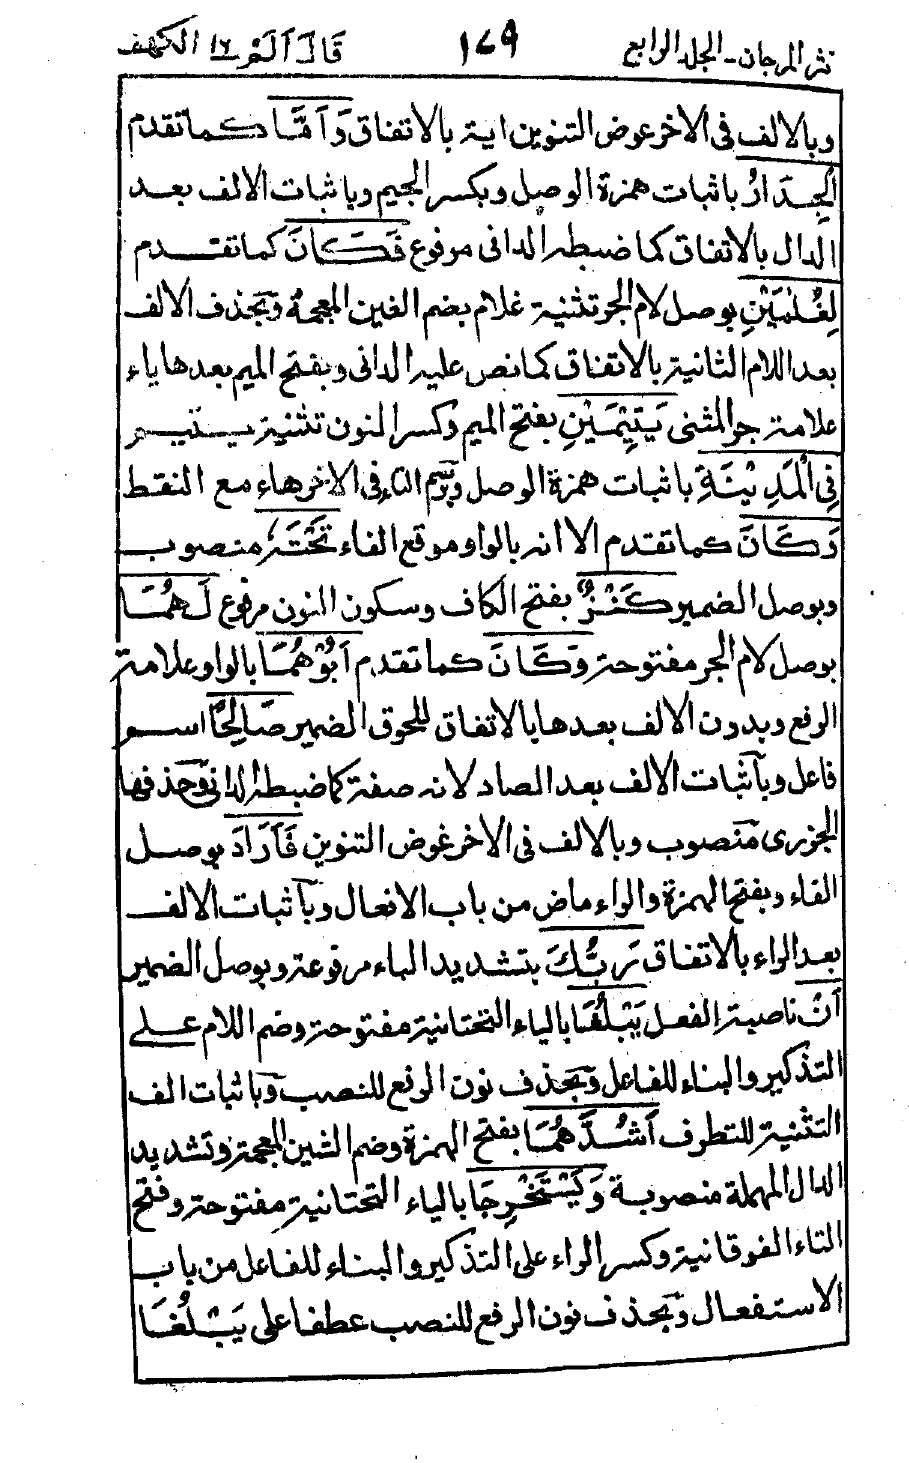 نثر المرجان - الجلد الرابع ١٧٩ قَالَ أَلَمْ ١٦ الكهف
وبالالف فى الاخر عوض التنوين اية بالاتفاق وَأَمَّا كما تقدم
الْجِدَارُ باثبات همزة الوصل وبكسر الجيم وباثبات الالف بعد
الدال بالاتفاق كما ضبطه الدانى مرفوع فَكَانَ كما تقدم
لِغُلٰمَيْنِ بوصل لام الجر تثنية غلام بضم الغين المعجمة وبحذف الالف
بعد اللام الثانية بالاتفاق كما نص عليه الدانى وبفتح الميم بعدها ياء
علامة جر المثنى يَتِيْمَيْنِ بفتح الميم وكسر النون تثنية يتيم
فِى الْمَدِيْنَةِ باثبات همزة الوصل وبرسم التاء فى الاخر هاء مع النقط
وَكَانَ كما تقدم الا انه بالواو موقع الفاء تَحْتَهٗ منصوب
وبوصل الضمير كَنْزٌ بفتح الكاف وسكون النون مرفوع لَهُمَا
بوصل لام الجر مفتوحة وَكَانَ كما تقدم أَبُوْهُمَا بالواو علامة
الرفع وبدون الالف بعدها بالاتفاق للحوق الضمير صَالِحًا اسم
فاعل وباثبات الالف بعد الصاد لانه صفة كما ضبطه الدانى وحذفها
الجزرى منصوب وبالالف فى الاخر عوض التنوين فَأَرَادَ بوصل
الفاء وبفتح الهمزة والراء ماض من باب الافعال وباثبات الالف
بعد الراء بالاتفاق رَبُّكَ بتشديد الباء مرفوعة وبوصل الضمير
أَنْ ناصبة الفعل يَبْلُغَا بالياء التحتانية مفتوحة وضم اللام على
التذكير والبناء للفاعل وبحذف نون الرفع للنصب وباثبات الف
التثنية للتطرف أَشُدَّهُمَا بفتح الهمزة وضم الشين المعجمة وتشديد
الدال المهملة منصوبة وَيَسْتَخْرِجَا بالياء التحتانية مفتوحة وفتح
التاء الفوقانية وكسر الراء على التذكير والبناء للفاعل من باب
الاستفعال وبحذف نون الرفع للنصب عطفا على يَبْلُغَا